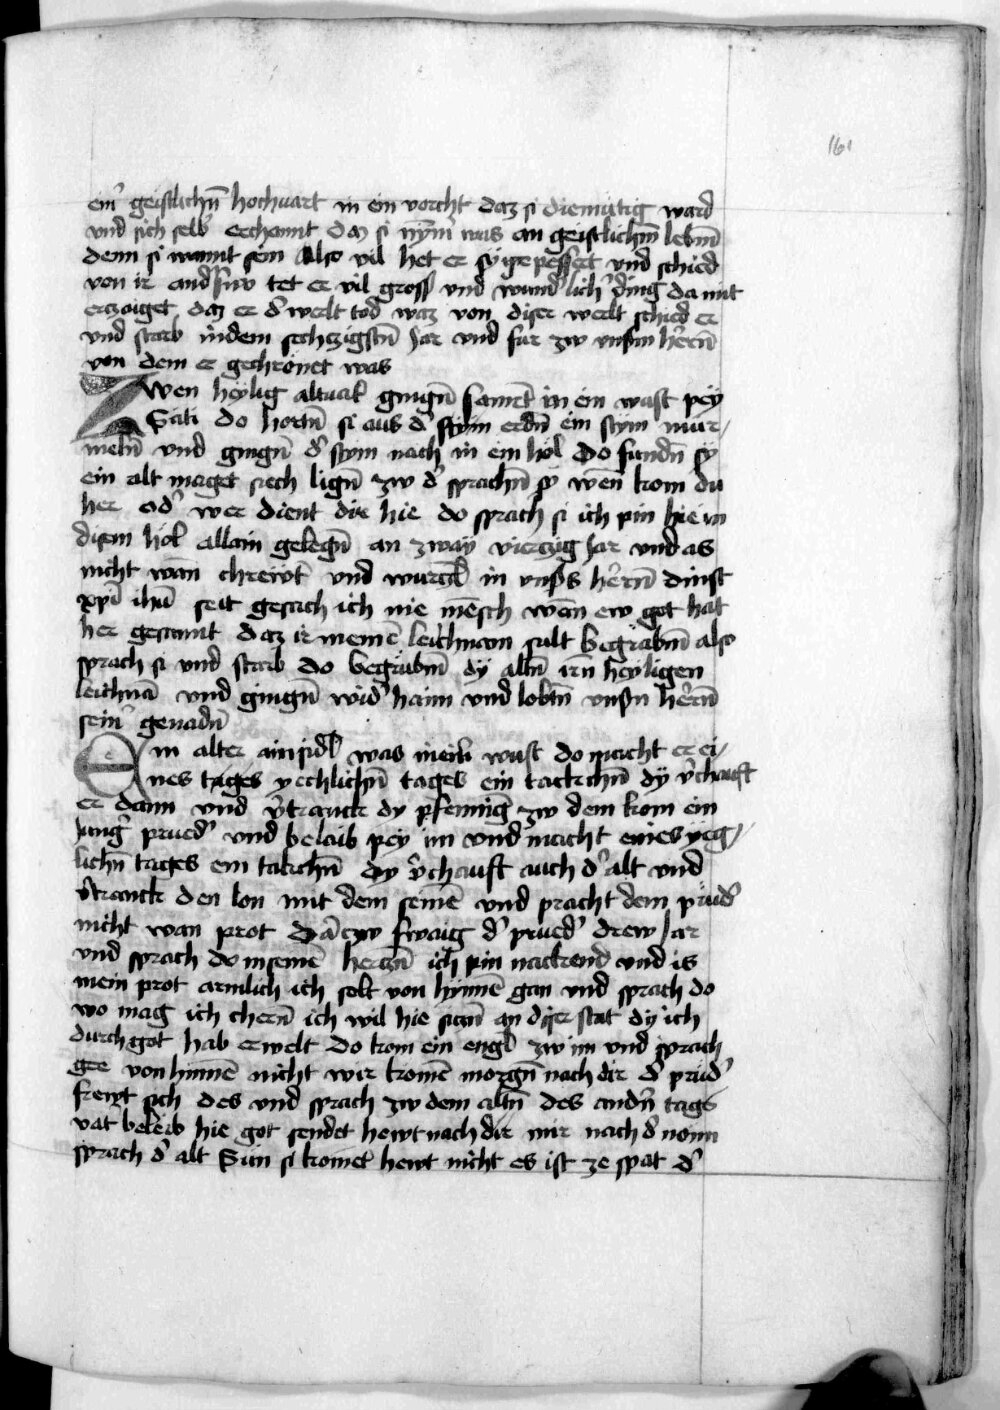 161
ein᷑ geistlichn̄ hochuart in ein vorcht daz si diemütig ward
vnd sich selb᷑ erchannt daz si mȳn̄ was an geistlichm̄ lebn̄
denn si wannt sein Also vil het er sy gepessert vnd schied
von ir and᷑swo tet er vil gross vnd wund᷑lich᷑ ding da mit
erzaiget daz er d᷑ welt tod waz von diser welt schied er
vnd starb in dem sechczigstn̄ Jar vnd fur zw vnserm herrn̄
von dem er gechrönet was
Zwen heylig altuat᷑ gingn̄ samēt in ein wüst pey
Siti do hortn̄ si aus d᷑ erdn̄ ein stym mur-
meln̄ vnd gingn̄ d᷑ stym nach in ein höl Do fundn̄ sy
ein alt maget siech lign̄ zw d᷑ sprachn̄ sy wen̄ kom du
her od᷑ wer dient dir hie do sprach si ich pin hie in
disem höl allain gelegn̄ an zway viertzig Jar vnd as
nicht wan chrewt᷑ vnd wurczl᷑ in vnsers herrn̄ dinst
xpī ihū seit gesach ich nie mēsch wan ew got hat
her gesannt daz ir meinē leichnam sült begrabn̄ also
sprach si vnd starb do begrubn̄ dy altn̄ irn heyligen
leichnā vnd gingn̄ wid᷑ haim vnd lobtn̄ vnsern herrn̄
sein᷑ genadn̄
Ein alter ainsidl᷑ was in ein᷑ wüst do macht er ei-
nes tages yechlichn̄ tages ein tackchn̄ dy v᷑chauft
er dann vnd v᷑tranck dy pfenning zw dem kom ein
Jung᷑ prued᷑ vnd belaib pey im vnd macht eines yeg-
lichn̄ tages ein takchn̄ dy v᷑chauft auch d᷑ alt vnd
v᷑tranck den lon mit dem seinē vnd pracht dem prud᷑
nicht wan prot Dāczw swaig d᷑ prued᷑ drew Jar
vnd sprach do in seinē herczn̄ ich pin nackend vnd is
mein prot armlich ich solt von hynnē gan vnd sprach do
wo mag ich chern̄ ich wil hie sein an diser stat dy ich
durch got hab erwelt Do kom ein engl᷑ zw im vnd sprach
gee von hinnē nicht wir komē morgn̄ nach dir d᷑ prud᷑
frewt sich des vnd sprach zw dem altn̄ des andn̄ tags
vat᷑ beleib hie got sendet hewt nach dir mir nach d᷑ nonn
sprach d᷑ alt Sün si komēt hewt nicht es ist ze spat d᷑